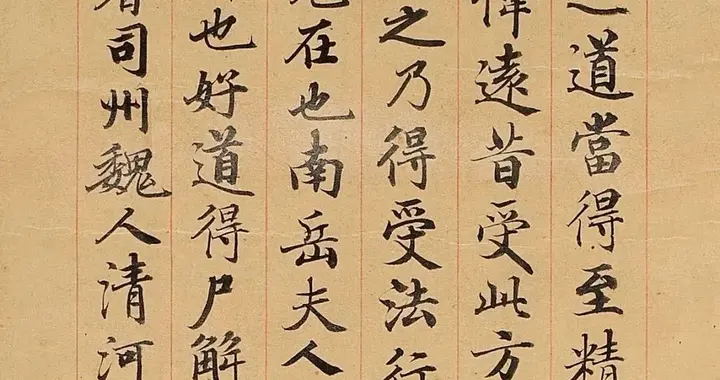 道當得至精
偉遠昔受此方
之乃得受法行
在也南岳夫人
也好道得尸解
司州魏人清河